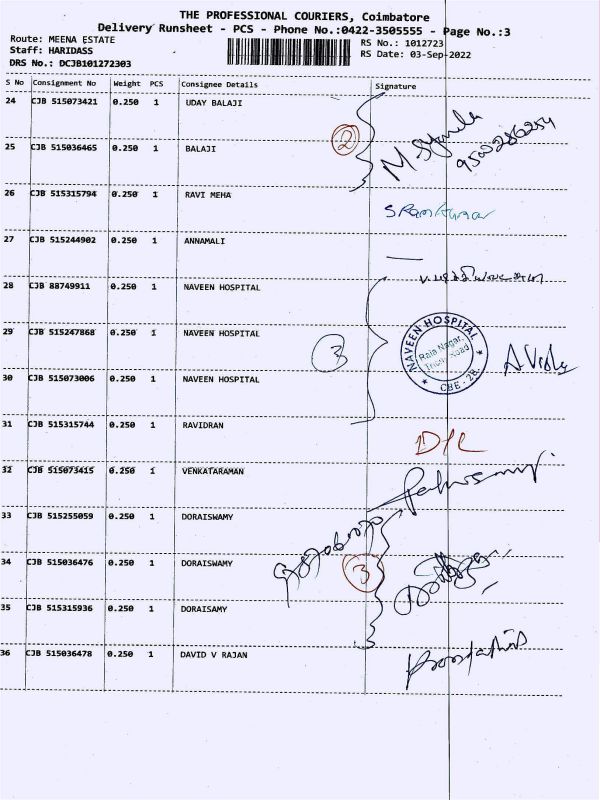 THE PROFESSIONAL COURIERS, Coimbatore
Delivery Runsheet - PCS - Phone No.:0422-3505555 - Page No.:3
Route: MEENA ESTATE
Staff: HARIDASS
DRS No.: DCJB101272303
RS No.: 1012723
RS Date: 03-Sep-2022
S No Consignment No Weight PCS Consignee Details Signature
24 CJB 515073421 0.250 1 UDAY BALAJI
2
25 CJB 515036465 0.250 1 BALAJI
26 CJB 515315794 0.250 1 RAVI MEHA
27 CJB 515244902 0.250 1 ANNAMALI
28 CJB 88749911 0.250 1 NAVEEN HOSPITAL
29 CJB 515247868 0.250 1 NAVEEN HOSPITAL
3
NAVEEN HOSPITAL
Raja Nagar,
Road
CBE - 28.
30 CJB 515073006 0.250 1 NAVEEN HOSPITAL
31 CJB 515315744 0.250 1 RAVIDRAN
32 CJB 515073415 0.250 1 VENKATARAMAN
33 CJB 515255059 0.250 1 DORAISWAMY
34 CJB 515036476 0.250 1 DORAISWAMY
3
35 CJB 515315936 0.250 1 DORAISAMY
36 CJB 515036478 0.250 1 DAVID V RAJAN